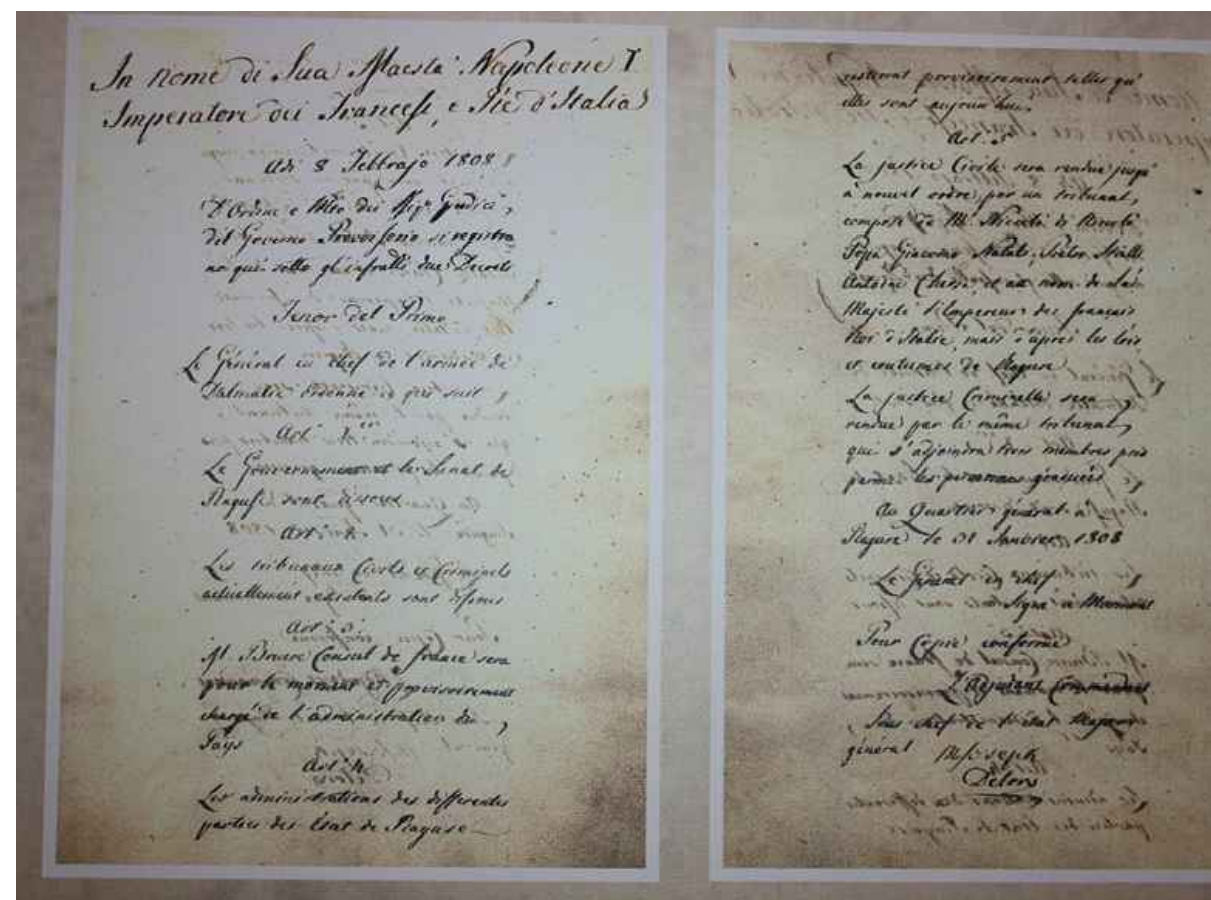 In nome di Sua Maestà Napoleone I
Imperatore dei Francesi, e Ré d'Italia
Adi 8 Febbrajo 1808
D'Ordine e dei Giudici,
del Governo Provvisorio si registra
no quì sotto gl'infratti due Decreti
Tenor del Primo
Le Général en chef de l'armée de
Dalmatie Ordonne ce qui suit
Art. 1er
Le Gouvernement et le Senat de
Raguse sont dissous
Art. 2
Les tribunaux Civils et Criminels
actuellement existants sont
Art. 3
M. Bruere Consul de france sera
pour le moment et provisoirement
chargé de l'administration du
Pays
Art. 4
Les administrations des differentes
parties des État de Raguse
resteront provisoirement telles qu'
elles sont aujourdhui
Art. 5
La justice Civile sera rendue jusqu'
à nouvel ordre, par un tribunal,
composé de M. Nicolò di
Pepa Giacomo Natali
Antoine Chersa et au nom de Sa
Majesté l'Empereur des français
Roi d'Italie, mais d'après les lois
et coutumes de Raguse
La justice Criminelle sera
rendue par le même tribunal,
qui s'adjoindra trois membres pris
parmi les personnes
Au Quartier général à
Raguse le 31 Janvier 1808
Le Général en chef
Signé Marmont
Pour Copie conforme
L'Adjudant Commandant
Sous chef de l'état Major
général
Delort